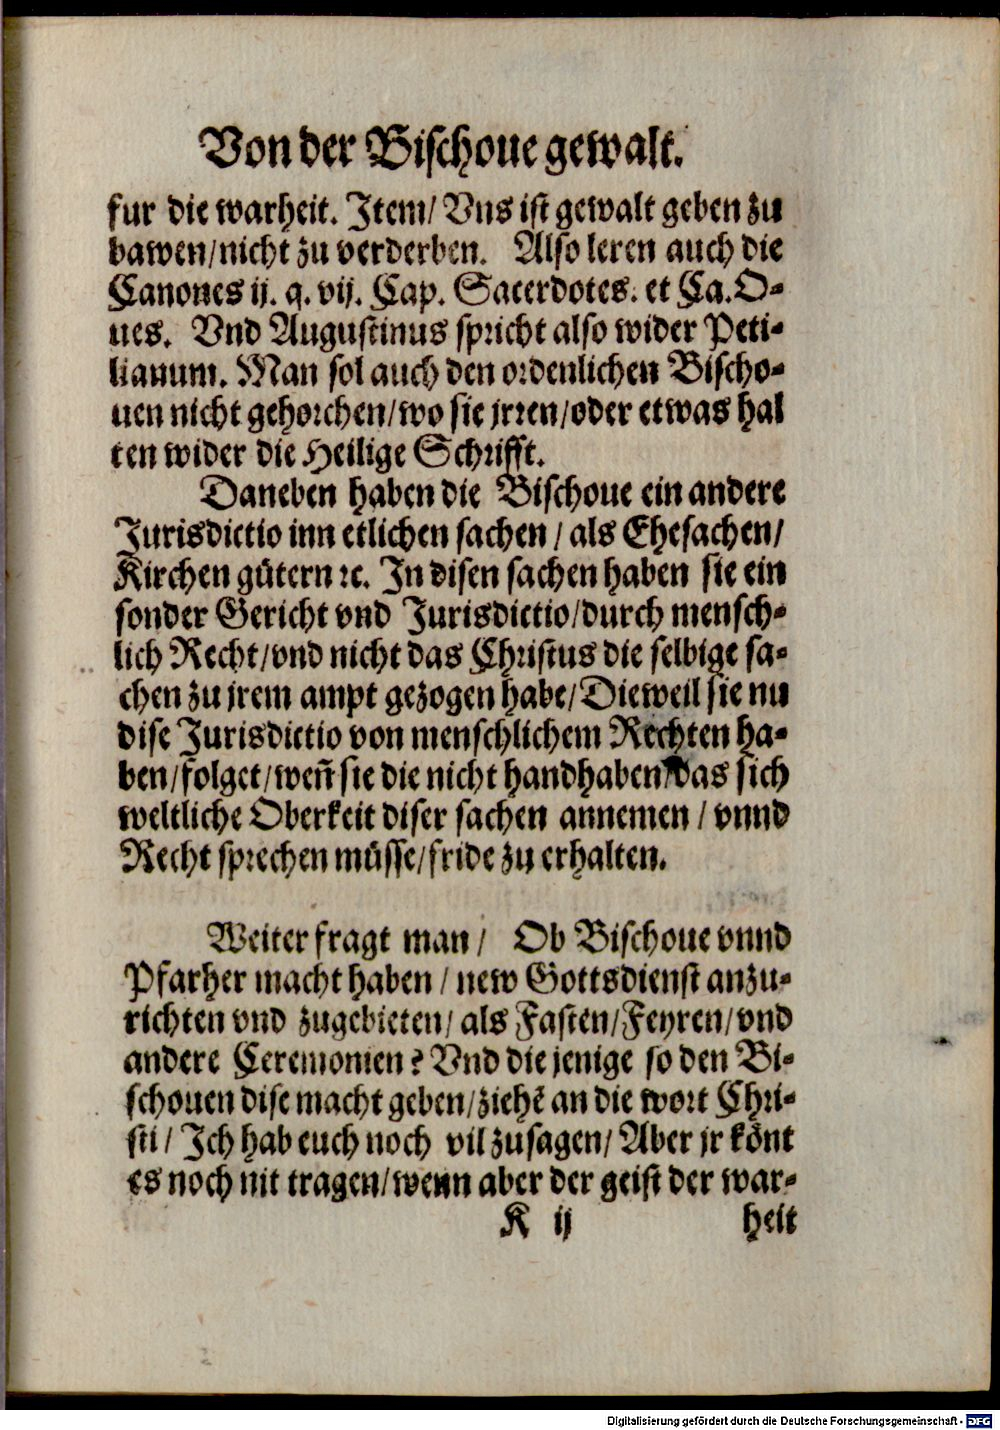 Von der Bischoue gewalt.
fur die warheit. Item/ Vns ist gewalt geben zu
bawen/nicht zu verderben. Also leren auch die
Canones ij. q. vij. Cap. Sacerdotes. et Ca. O-
ues. Vnd Augustinus spricht also wider Peti-
lianum. Man sol auch den ordenlichen Bischo-
uen nicht gehorchen/wo sie jrren/oder etwas hal
ten wider die Heilige Schrifft.
Daneben haben die Bischoue ein andere
Jurisdictio inn etlichen sachen / als Ehesachen/
Kirchen gütern ꝛc. In disen sachen haben sie ein
sonder Gericht vnd Jurisdictio/durch mensch-
lich Recht/vnd nicht das Christus die selbige sa-
chen zu jrem ampt gezogen habe/Dieweil sie nu
dise Jurisdictio von menschlichem Rechten ha-
ben/folget/weñ sie die nicht handhaben das sich
weltliche Oberkeit diser sachen annemen / vnnd
Recht sprechen müsse/fride zu erhalten.
Weiter fragt man / Ob Bischoue vnnd
Pfarher macht haben / new Gottsdienst anzu-
richten vnd zugebieten/ als Fasten/Feyren/vnd
andere Ceremonien? Vnd die jenige so den Bi-
schouen dise macht geben/ziehē an die wort Chri-
sti/ Ich hab euch noch vil zusagen/ Aber jr könt
es noch nit tragen/wenn aber der geist der war-
K ij heit
Digitalisierung gefördert durch die Deutsche Forschungsgemeinschaft - DFG